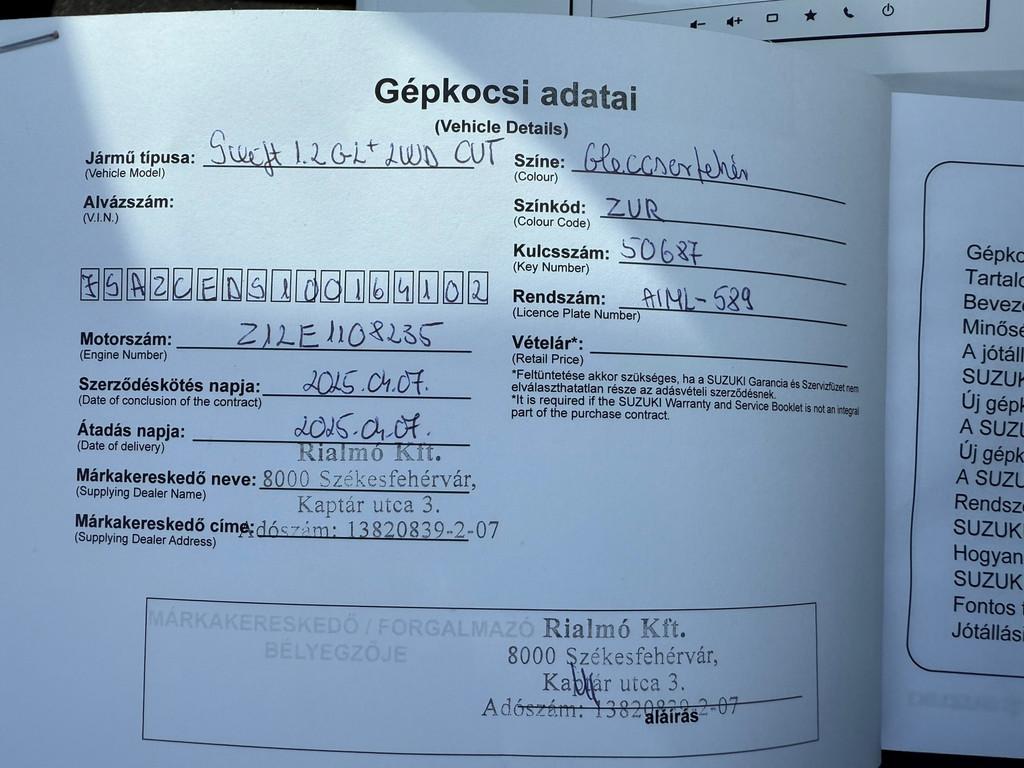 Gépkocsi adatai
(Vehicle Details)
Jármű típusa: Swift 1.2 GL+ 2WD CVT
(Vehicle Model)
Alvázszám:
(V.I.N.)
Motorszám: Z12E1108235
(Engine Number)
Szerződéskötés napja: 2025.04.07.
(Date of conclusion of the contract)
Átadás napja: 2025.04.07.
(Date of delivery)
Rialmó Kft.
Márkakereskedő neve: 8000 Székesfehérvár,
(Supplying Dealer Name)
Kaptár utca 3.
Márkakereskedő címe: Adószám: 13820839-2-07
(Supplying Dealer Address)
Színe: Gleccserfehér
(Colour)
Színkód: ZUR
(Colour Code)
Kulcsszám: 50687
(Key Number)
Rendszám: AIML-589
(Licence Plate Number)
Vételár*:
(Retail Price)
*Feltüntetése akkor szükséges, ha a SUZUKI Garancia és Szervizfüzet nem
elválaszthatatlan része az adásvételi szerződésnek.
*It is required if the SUZUKI Warranty and Service Booklet is not an integral
part of the purchase contract.
MÁRKAKERESKEDŐ / FORGALMAZÓ
BÉLYEGZŐJE
Rialmó Kft.
8000 Székesfehérvár,
Kaptár utca 3.
Adószám: 13820839-2-07
aláírás
A jótáll
SUZUK
Új gépk
A SUZU
Új gépk
A SUZU
SUZUK
Hogyan
SUZUK
Fontos